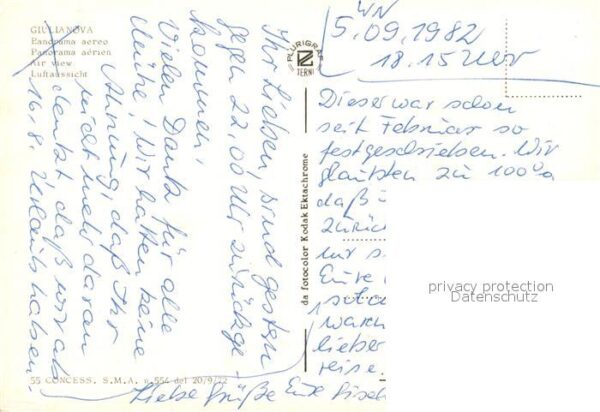 GIULIANOVA
Panorama aereo
Panorama aérien
Air view
Luftaussicht
PLURIGRAF
TERNI
WN
5.09.1982
18.15 Uhr
Ihr Lieben, sind gestern
gegen 22,00 Uhr zurückge-
kommen.
Vielen Dank für alle
Mühe! Wir hatten keine
Ahnung, daß Ihr
nicht mehr daran
denkt daß wir ab
16.8. Urlaub haben.
Dieser war schon
seit Februar so
festgeschrieben. Wir
glaubten zu 100%
daß
zurück
nur s
Eure
waren
lieber
reise.
Liebe Grüße Eure
da fotocolor Kodak Ektachrome
privacy protection
Datenschutz
55 CONCESS. S.M.A. n. 554 del 20/9/72